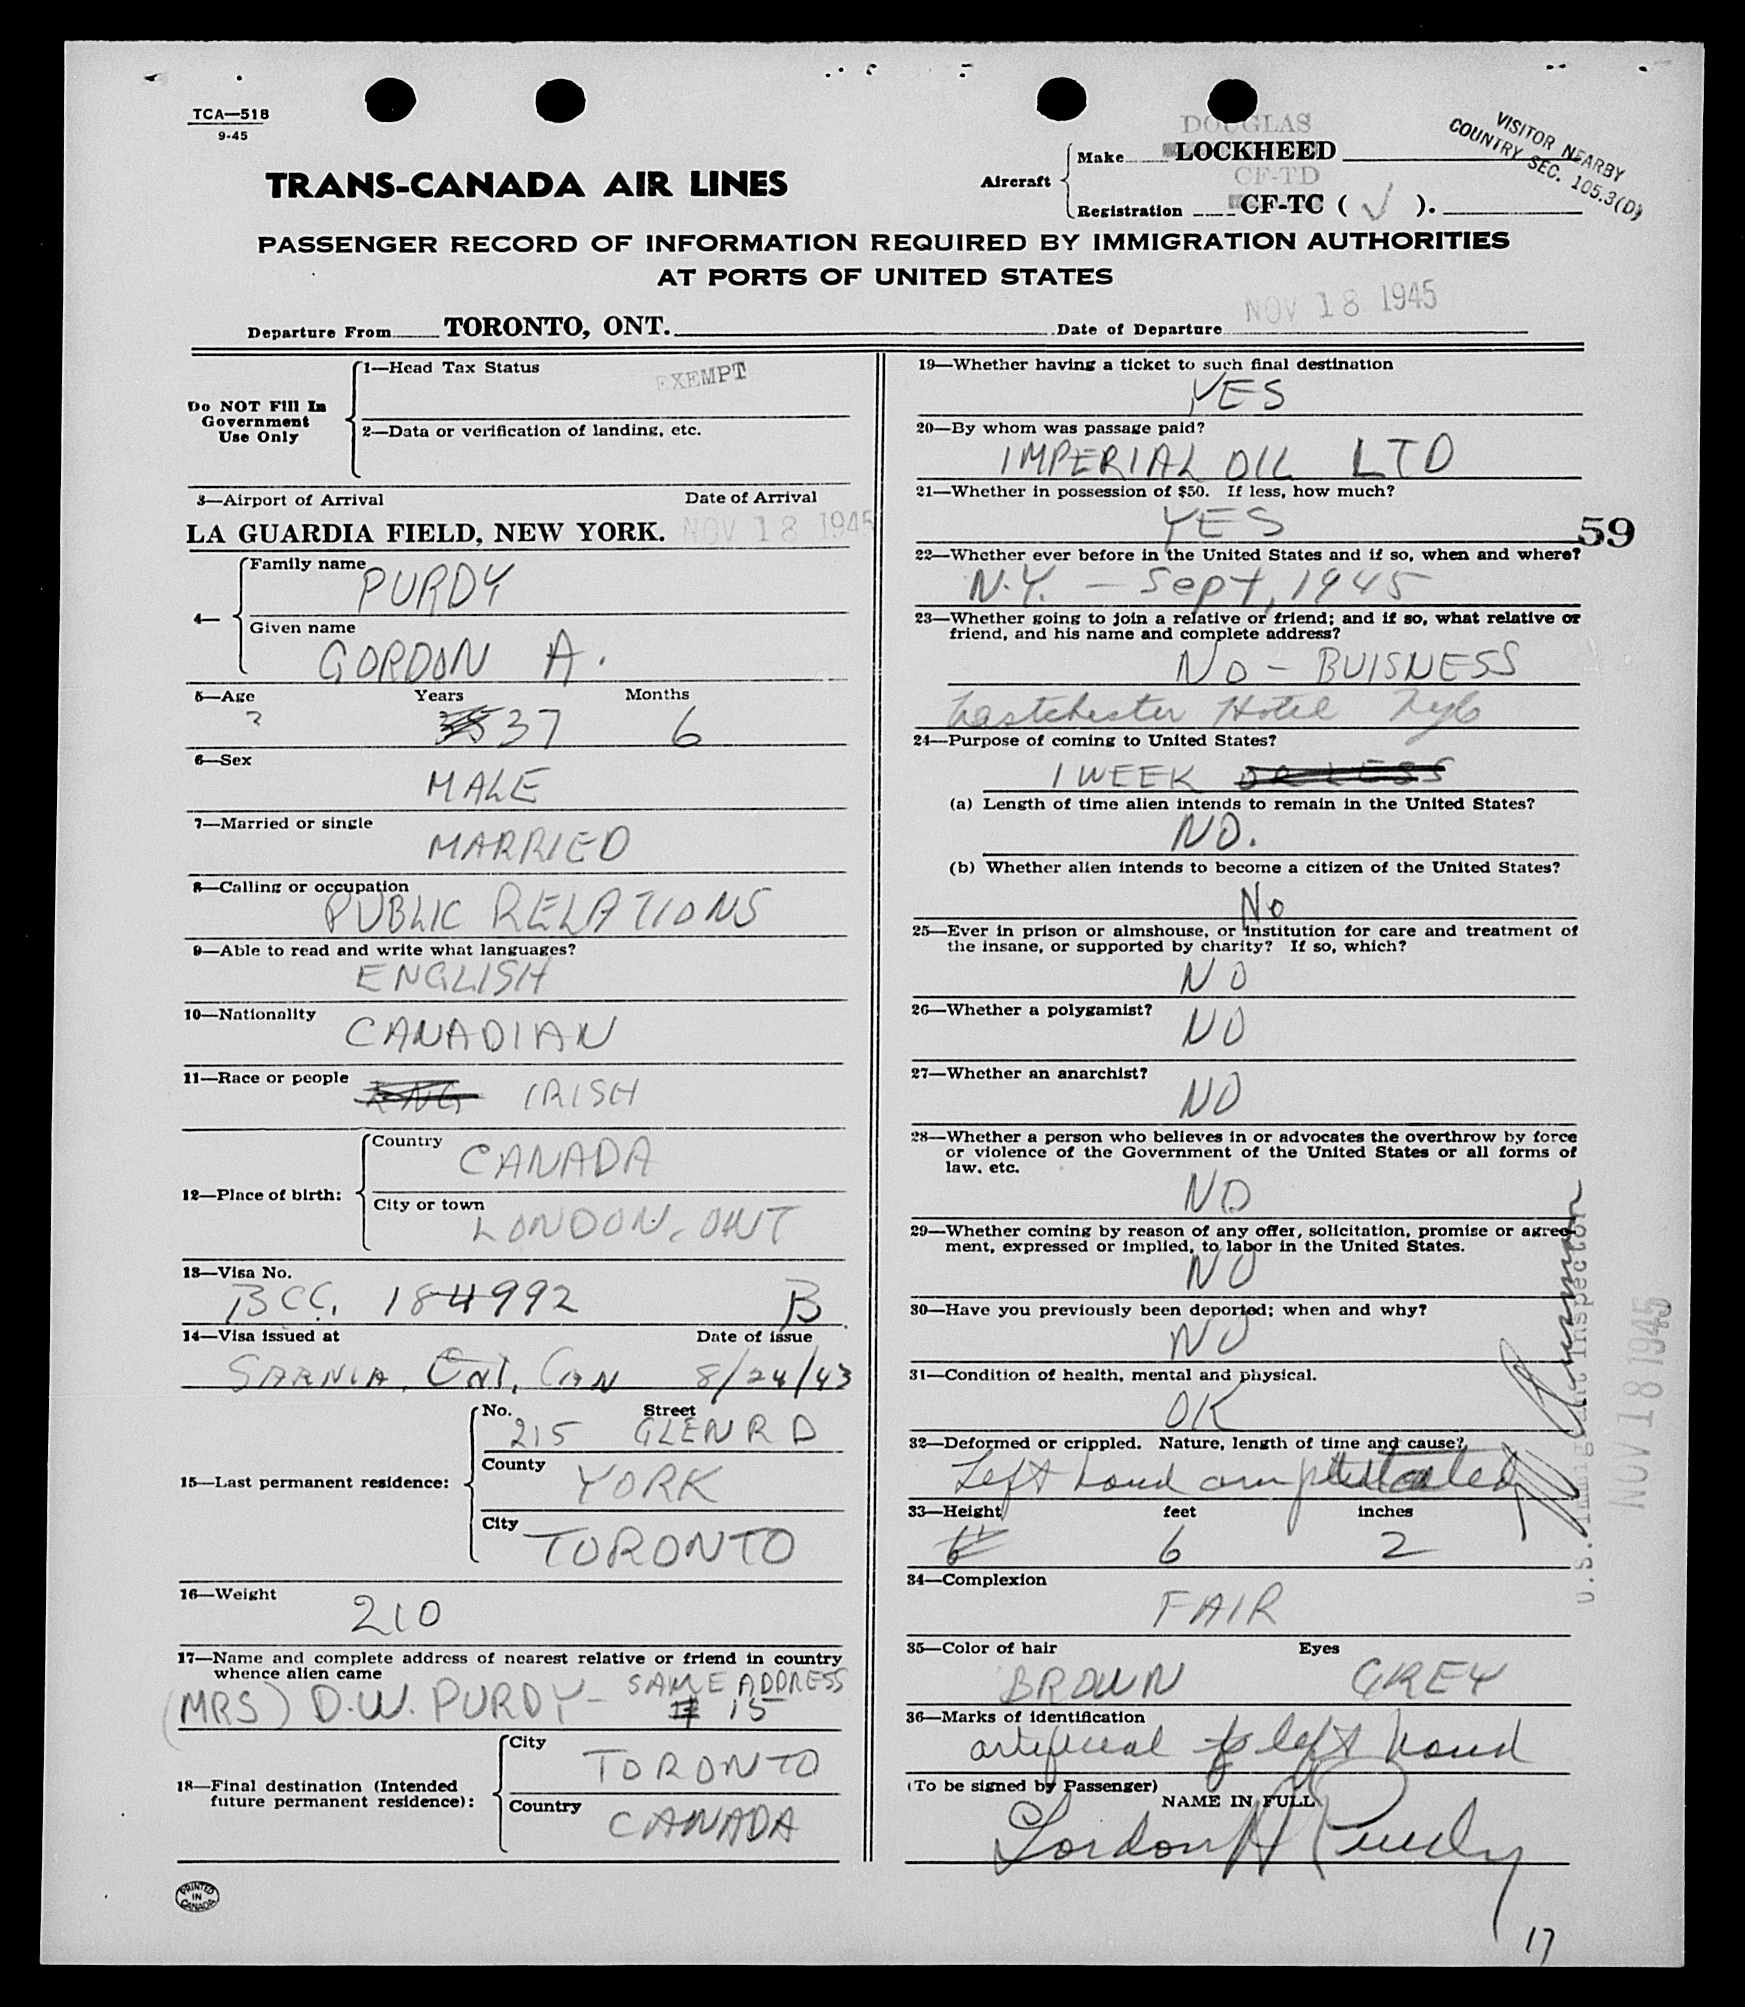 TCA—518
9-45
VISITOR NEARBY
COUNTRY SEC. 105.3(D)
DOUGLAS
Aircraft
Make LOCKHEED
CF-TD
Registration CF-TC ( ✓ ).
TRANS-CANADA AIR LINES
PASSENGER RECORD OF INFORMATION REQUIRED BY IMMIGRATION AUTHORITIES
AT PORTS OF UNITED STATES
NOV 18 1945
Departure From TORONTO, ONT. Date of Departure
Do NOT Fill In
Government
Use Only
1—Head Tax Status
EXEMPT
2—Data or verification of landing, etc.
3—Airport of Arrival Date of Arrival
LA GUARDIA FIELD, NEW YORK. NOV 18 1945
4—
Family name
PURDY
Given name
GORDON A.
5—Age Years Months
37 6
6—Sex
MALE
7—Married or single
MARRIED
8—Calling or occupation
PUBLIC RELATIONS
9—Able to read and write what languages?
ENGLISH
10—Nationality
CANADIAN
11—Race or people
ENG IRISH
12—Place of birth:
Country
CANADA
City or town
LONDON, ONT
13—Visa No.
BCC. 184992 B
14—Visa issued at Date of issue
SARNIA, ONT, CAN 8/24/43
15—Last permanent residence:
No. Street
215 GLEN RD
County
YORK
City
TORONTO
16—Weight
210
17—Name and complete address of nearest relative or friend in country
whence alien came
(MRS) D.W. PURDY - SAME ADDRESS
# 15
18—Final destination (Intended
future permanent residence):
City
TORONTO
Country
CANADA
PRINTED
IN
CANADA
19—Whether having a ticket to such final destination
YES
20—By whom was passage paid?
IMPERIAL OIL LTD
21—Whether in possession of $50. If less, how much?
YES
59
22—Whether ever before in the United States and if so, when and where?
N.Y. - Sept, 1945
23—Whether going to join a relative or friend; and if so, what relative or
friend, and his name and complete address?
NO - BUISNESS
Hotel
24—Purpose of coming to United States?
1 WEEK OR LESS
(a) Length of time alien intends to remain in the United States?
NO.
(b) Whether alien intends to become a citizen of the United States?
No
25—Ever in prison or almshouse, or institution for care and treatment of
the insane, or supported by charity? If so, which?
NO
26—Whether a polygamist?
NO
27—Whether an anarchist?
NO
28—Whether a person who believes in or advocates the overthrow by force
or violence of the Government of the United States or all forms of
law, etc.
NO
29—Whether coming by reason of any offer, solicitation, promise or agree-
ment, expressed or implied, to labor in the United States.
NO
30—Have you previously been deported; when and why?
NO
31—Condition of health, mental and physical.
OK
32—Deformed or crippled. Nature, length of time and cause?
Left hand
33—Height feet inches
6 2
34—Complexion
FAIR
35—Color of hair Eyes
BROWN GREY
36—Marks of identification
artificial left hand
(To be signed by Passenger)
NAME IN FULL
Gordon A Purdy
U.S. Immigrant Inspector
NOV 18 1945
17